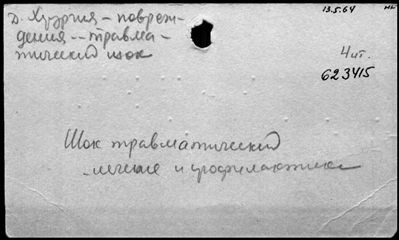 13.5.64
Д. Хирургия – повреж-
дения -- травма-
тический шок
4 шт.
623415
Шок травматический
лечение и профилактика